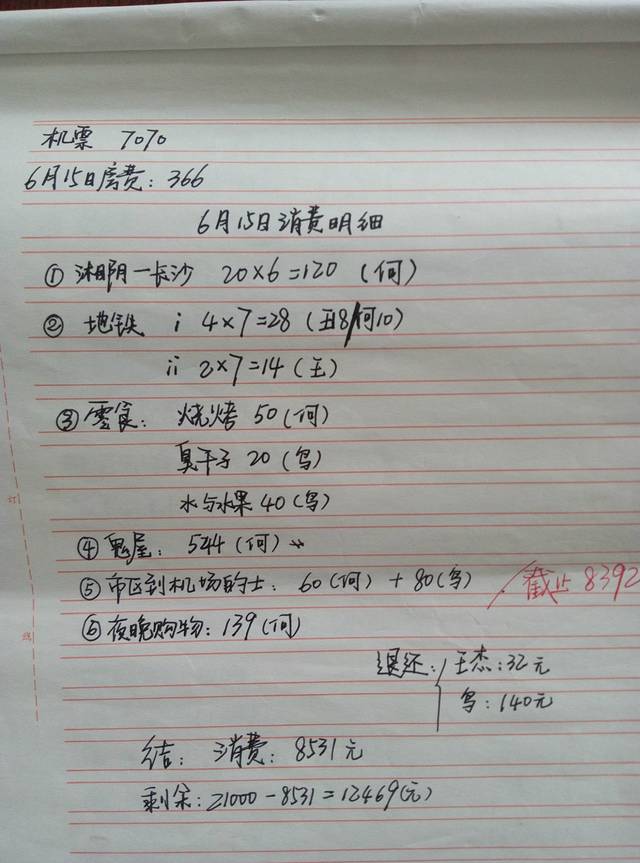 机票 7070
6月15日房费：366
6月15日消费明细
① 湘阴—长沙 20×6=120 (何)
② 地铁 i 4×7=28 (王18/何10)
ii 2×7=14 (王)
③ 零食： 烧烤 50 (何)
臭干子 20 (鸟)
水与水果 40 (鸟)
④ 鬼屋： 544 (何)
⑤ 市区到机场的士： 60 (何) + 80 (鸟)
截止 8392
⑥ 夜晚购物：139 (何)
退还： 王杰：32元
鸟：140元
结： 消费： 8531元
剩余：21000-8531=12469(元)
订
线